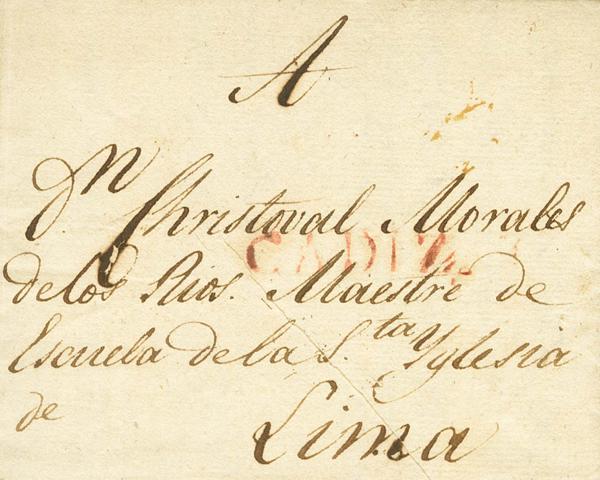 A
Dn. Christoval Morales
CADIZ.
delos Rios. Maestre de
Escuela dela S.ta Yglesia
de Lima